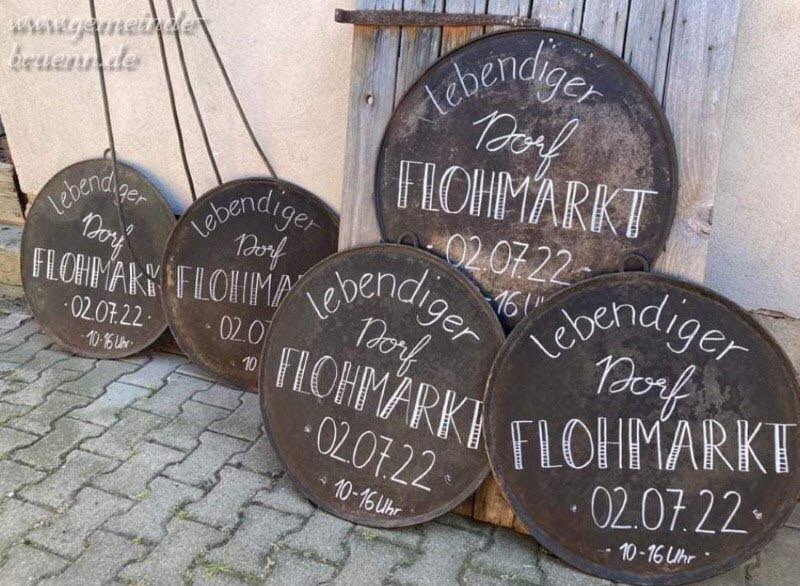 www.gemeinde-
bruenn.de
lebendiger
Dorf
FLOHMARKT
02.07.22
10-16 Uhr
lebendiger
Dorf
FLOHMA
02.0
10
lebendiger
Dorf
FLOHMARKT
02.07.22
-16 U
lebendiger
Dorf
FLOHMARKT
02.07.22
10-16 Uhr
lebendiger
Dorf
FLOHMARKT
02.07.22
10-16 Uhr